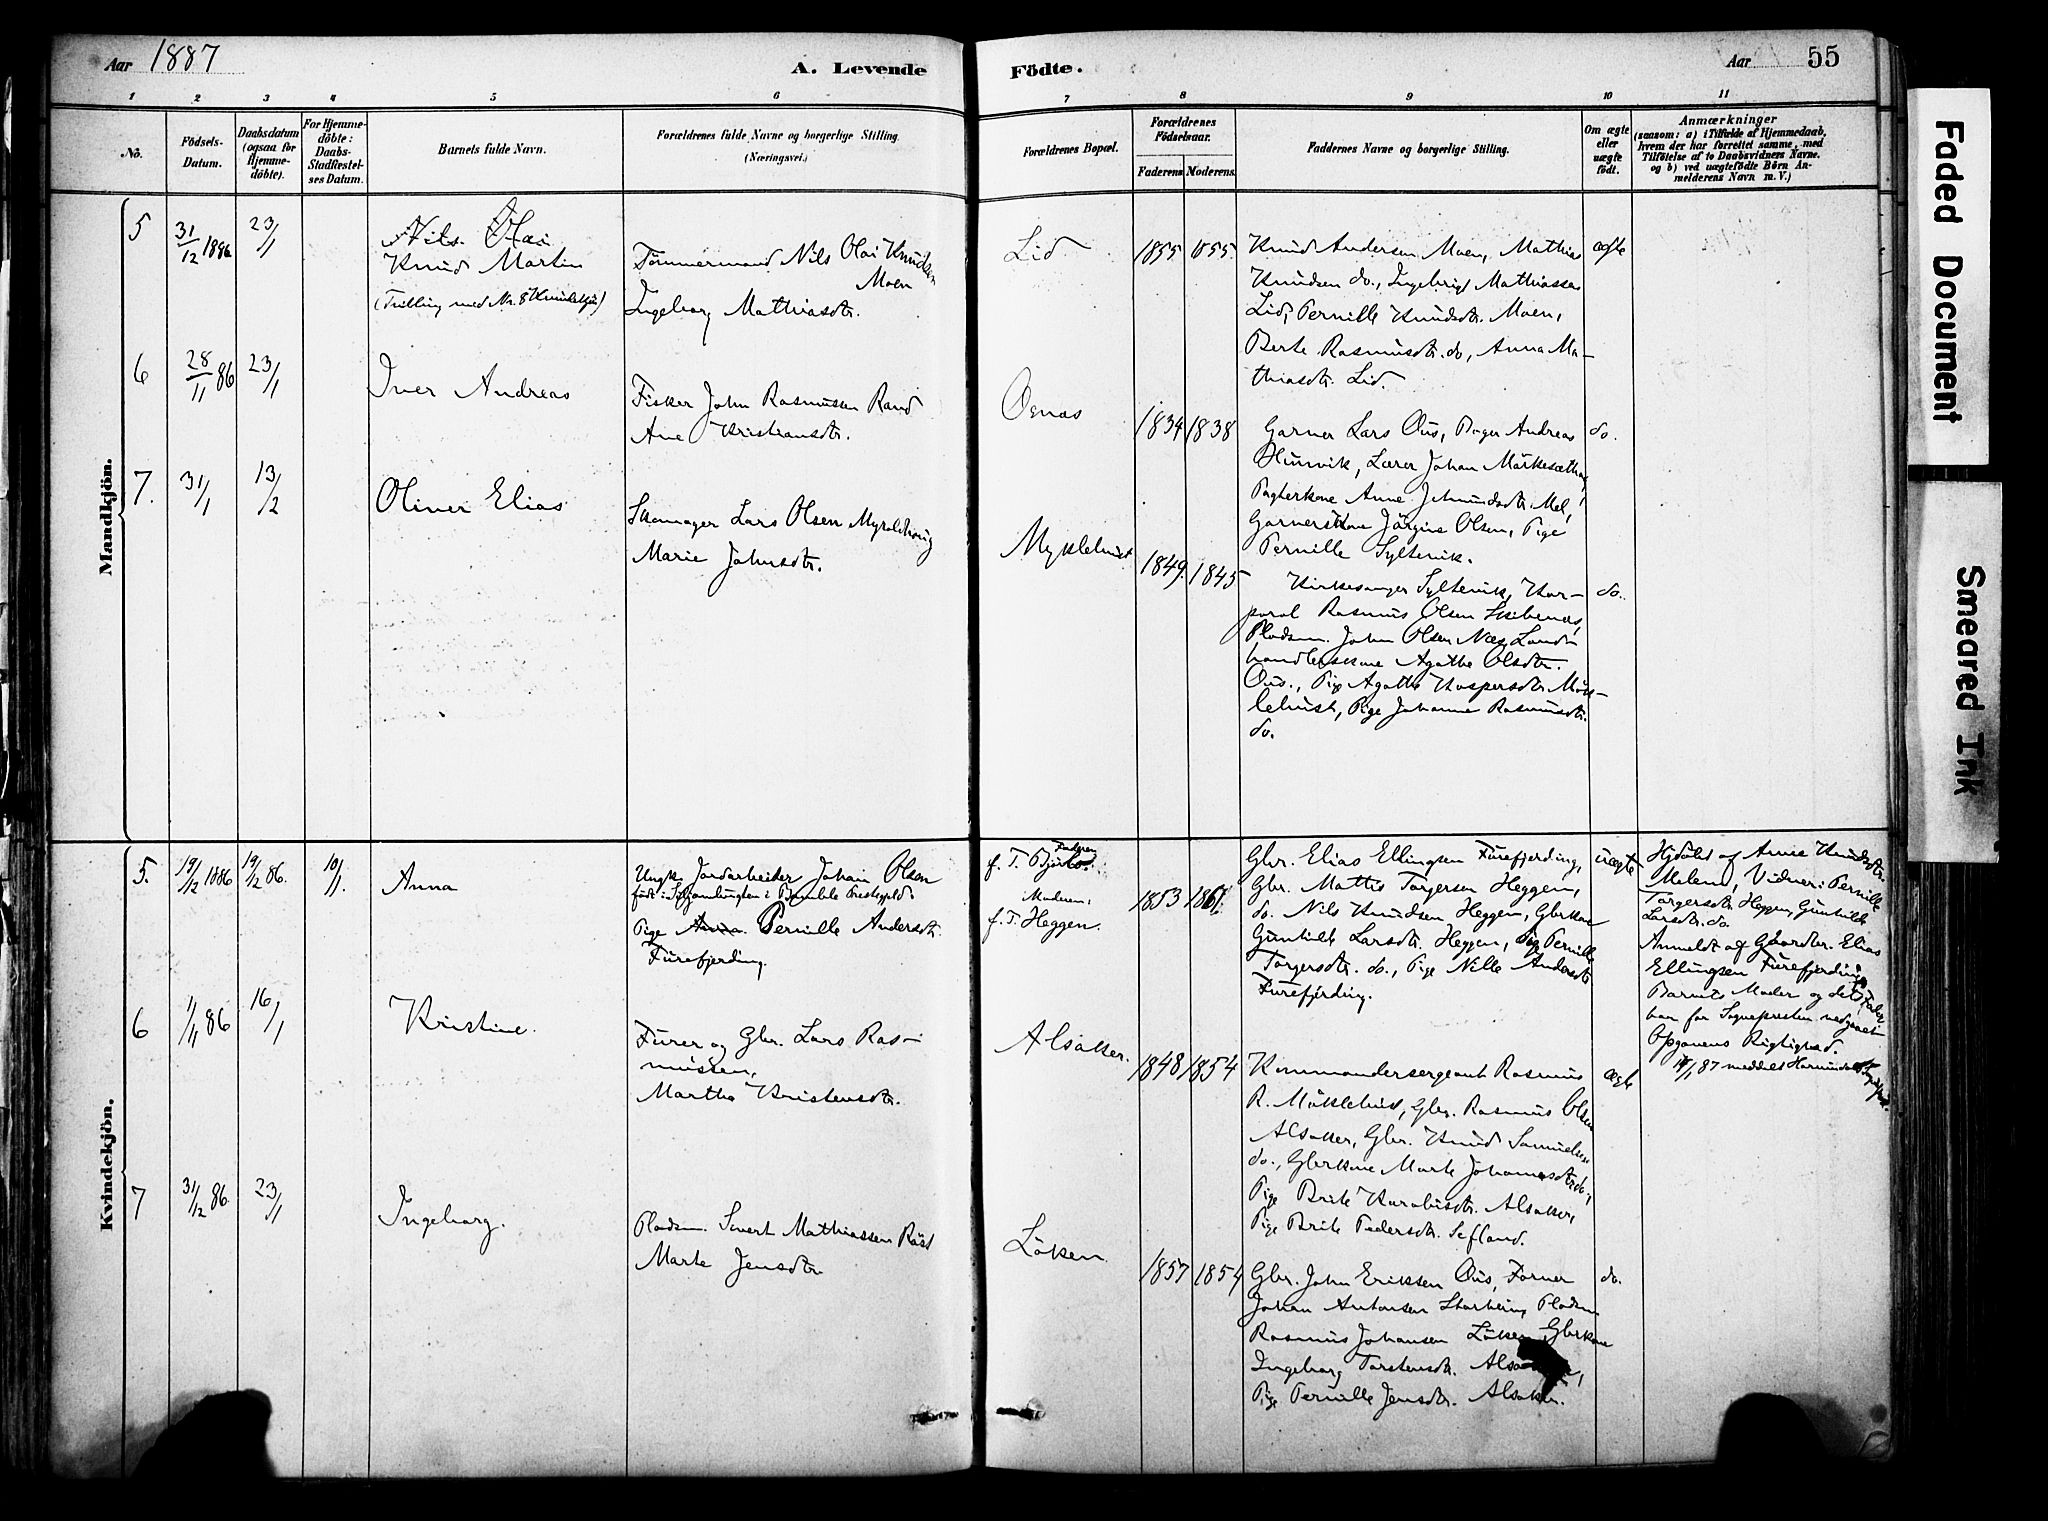 Aar 1887
A. Levende
Födte.
Aar
55
1 2 3 4 5 6 7 8 9 10 11
No.
Födsels-
Datum.
Daabsdatum
(ogsaa for
Hjemme-
döbte).
For Hjemme-
döbte:
Daabs-
Stadfæstel-
ses Datum.
Barnets fulde Navn.
Forældrenes fulde Navne og borgerlige Stilling.
(Næringsvei.)
Forældrenes Bopæl.
Forældrenes
Födselsaar.
Faderens Moderens
Faddernes Navne og borgerlige Stilling.
Om ægte
eller
uægte
födt.
Anmærkninger
(saasom: a) i Tilfælde af Hjemmedaab,
hvem der har forrettet samme, med
Tilföielse af to Daabsvidners Navne.
og b) ved uægtefödte Börn An-
melderens Navn m. V.)
Mandkjön.
5
31/12 1886
23/1
Nils Olai
Knud Martin
(Tvilling med Nr. 8 Kvindekjön)
Tömmermand Nils Olai Knudsen
Moen
Ingeborg Mathiasdtr.
Lid
1855 1855.
Knud Andersen Moen, Mathias
Knudsen do., Ingebrigt Mathiassen
Lid, Pernille Knudsdtr. Moen,
Berte Rasmusdtr. do, Anna Ma-
thiasdtr. Lid.
ægte
6
28/11 86
23/1
Iver Andreas
Fisker John Rasmussen Rand
Ane Kristiansdtr.
Osnas
1834 1838
Garver Lars Ous, Bager Andreas
Hunvik, Lærer Johan Mörkesæther,
Pagterkone Anne Jetmundsdtr. Mel,
Garverskone Jörgine Olsen, Pige
Pernille Sylterik.
do.
7.
31/1
13/2
Oliver Elias
Skomager Lars Olsen Myroldhoug
Marie Johnsdtr.
Myklebust
1849. 1845
Kirkesanger Sylterik, Kor-
poral Rasmus Olsen Skibenes,
Pladsm. John Olsen Næs, Land-
handlerskone Agathe Olsdtr.
Ous., Pige Agathe Kaspersdtr. Mök-
lebust, Pige Johanne Rasmusdtr.
do.
do.
Kvindekjön.
5.
19/12 1886
19/12 86.
10/1.
Anna
Ungk. Jordarbeider Johan Olsen
födt i
i Bamble Præstegjeld.
Pige Anna Pernille Andersdtr.
Furefjerding.
Faderen
f. T. Björlo.
Moderen:
f. T. Heggen.
1853
Gbr. Elias Ellingsen Furefjerding,
Gbr. Mattis Torgersen Heggen,
do. Nils Knudsen Heggen, Gbrkone
Gunhild Larsdtr. Heggen, Pige Pernille
Torgersdtr. do., Pige Nille Andersdtr
Furefjerding.
uægte
Hjdöbt af Anne Knudsdtr.
Melem, Vidner: Pernille
Torgersdtr. Heggen, Gunhilde
Larsdtr. do.
Anmeldt af Gaardbr. Elias
Ellingsen Furefjerding,
Barnets Moder og dets Fader
har for Sognepresten vedgaaet
Opgavens Rigtighed.
6
1/1 86
16/1
Kristine.
Furer og Gbr. Lars Ras-
mussen,
Martha Kristensdtr.
Alsaker.
1848 1854
Kommandersergeant Rasmus
R. Möklebust, Gbr. Rasmus Olsen
Alsaker, Gbr. Knud Samuelsen
do., Gbrkone Marte Johannesdtr. do.,
Pige Brite Karolusdtr. Alsaker,
Pige Brite Pedersdtr. Sefland.
ægte
7
31/12 86
23/1
Ingeborg.
Pladsm. Sivert Mathiassen Röst
Marte Jensdtr
Löken
1857 1854
Gbr. John Eriksen Ous, Forner
Johan Antonsen Starheim, Pladsm
Rasmus Johansen Löken, Gbrkone
Ingeborg Torstensdtr. Alsaker,
Pige Pernille Jensdtr. Alsaker.
do.
Faded Document
Smeared Ink